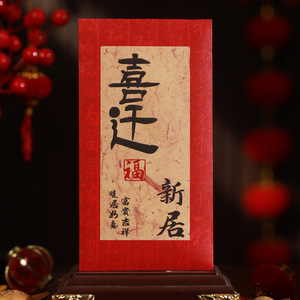 喜迁
福
新居
富贵吉祥
暖居如意